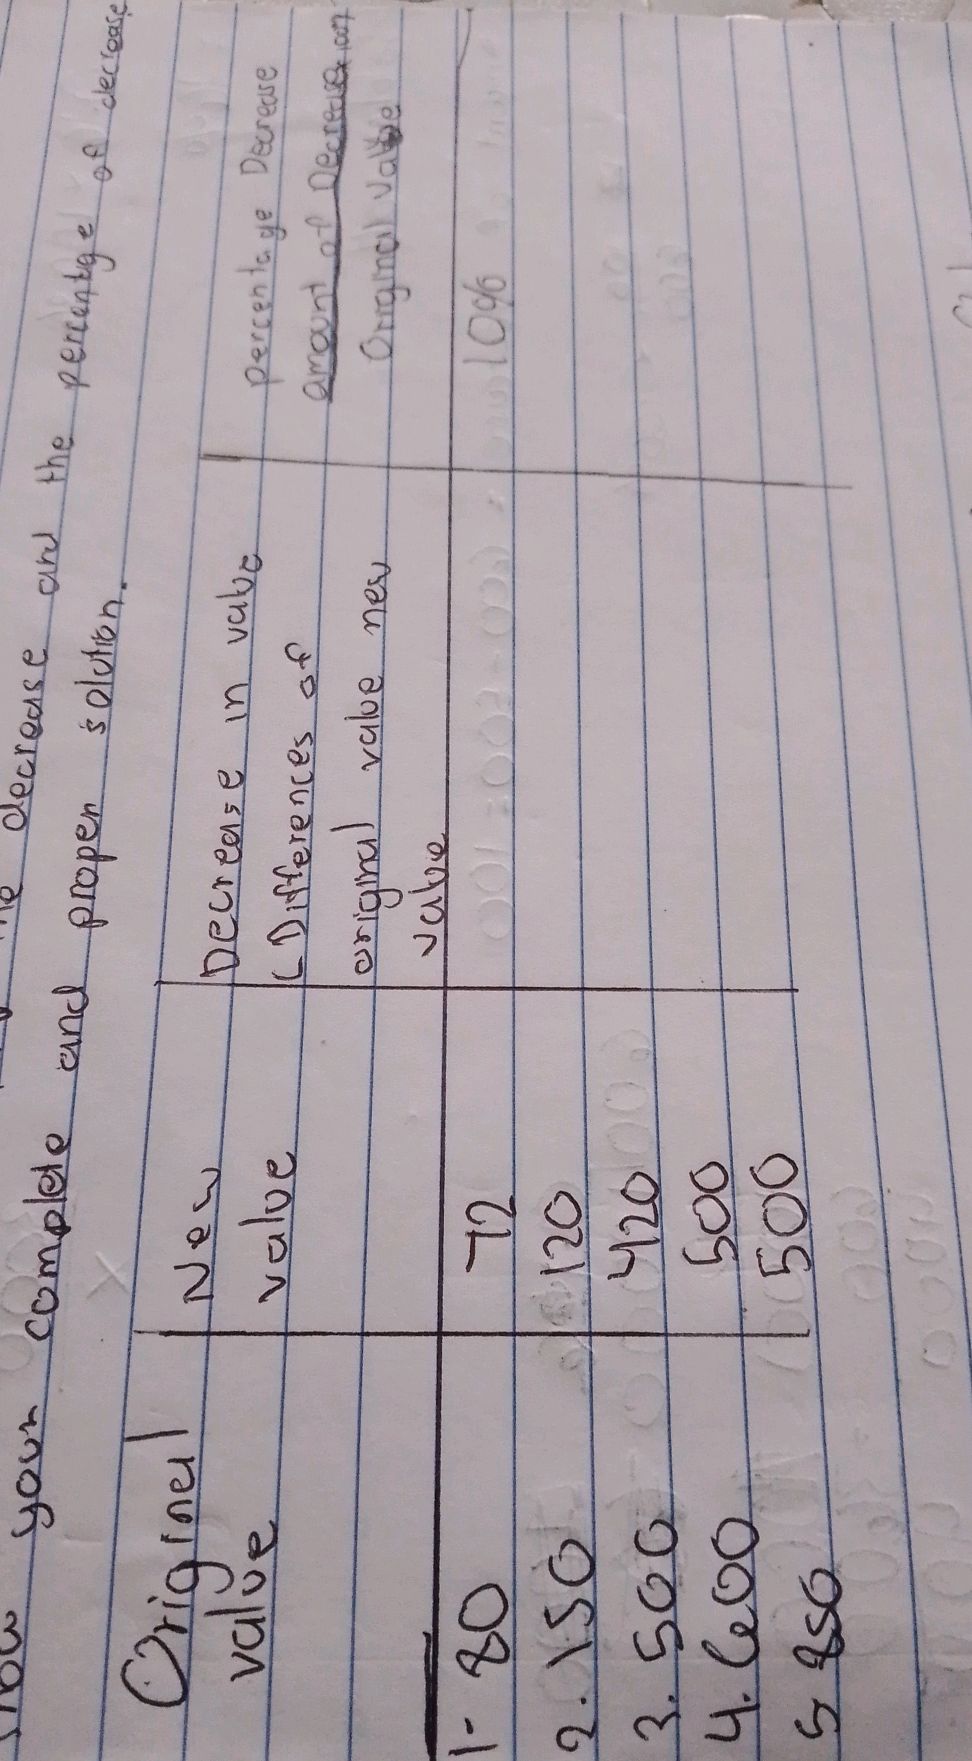 your complete and proper solution.
decrease and the percentage of decrease
Original value
New value
Decrease in value
(Differences of
original value new
value
percentage Decrease
amount of Decrease x 100%
Original value
1- 80 72 10%
2. 150 120
3. 500 420
4. 600 500
5 850 500